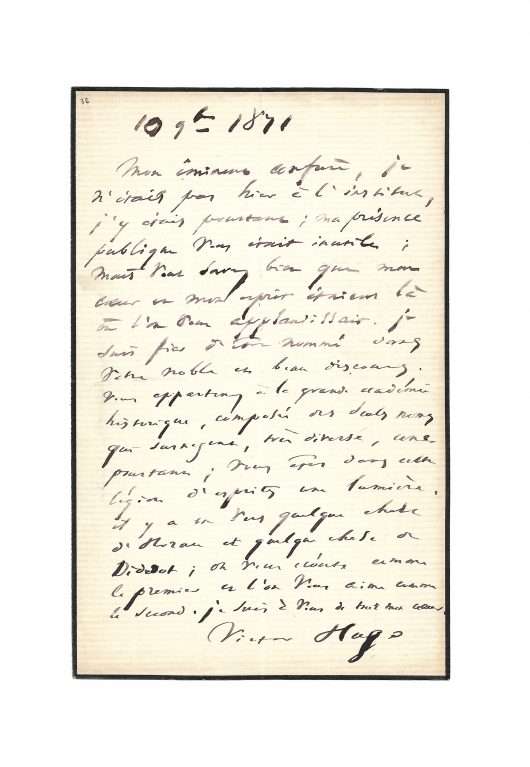 36
10 9bre 1871
Mon éminent confrère, je
n'étais pas hier à l'institut,
j'y étais pourtant ; ma présence
publique vous était inutile ;
mais vous savez bien que mon
cœur et mon esprit étaient là
où l'on vous applaudissait. je
suis fier d'être nommé dans
votre noble et beau discours.
vous appartenez à la grande académie
historique, composée des seuls noms
qui surnagent, très diverse, une
pourtant ; vous êtes dans cette
légion d'esprits une lumière.
il y a en vous quelque chose
d'Horace et quelque chose de
Diderot ; on vous écoute comme
le premier et l'on vous aime comme
le second. je suis à vous de tout mon cœur.
Victor Hugo